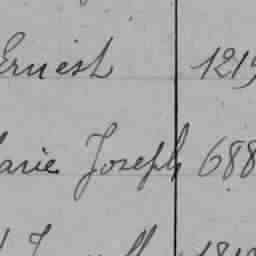 Ernest 1219
Marie Joseph 688